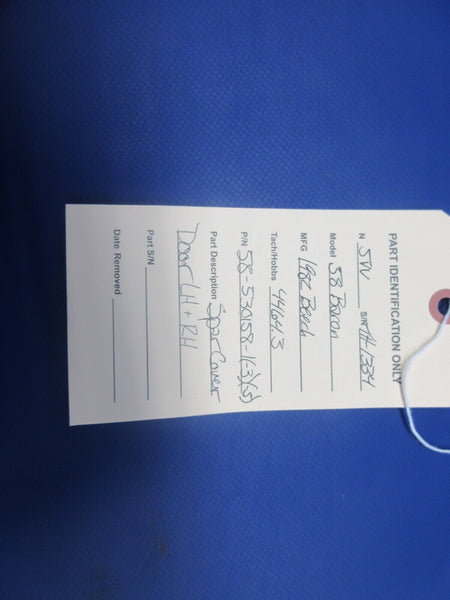 PART IDENTIFICATION ONLY
N 5VV S/N TH-1334
Model 58 Baron
MFG 1982 Beech
Tach/Hobbs 4464.3
P/N 58-530158-1(-3)(5)
Part Description Spar Cover
Door LH + RH
Part S/N
Date Removed